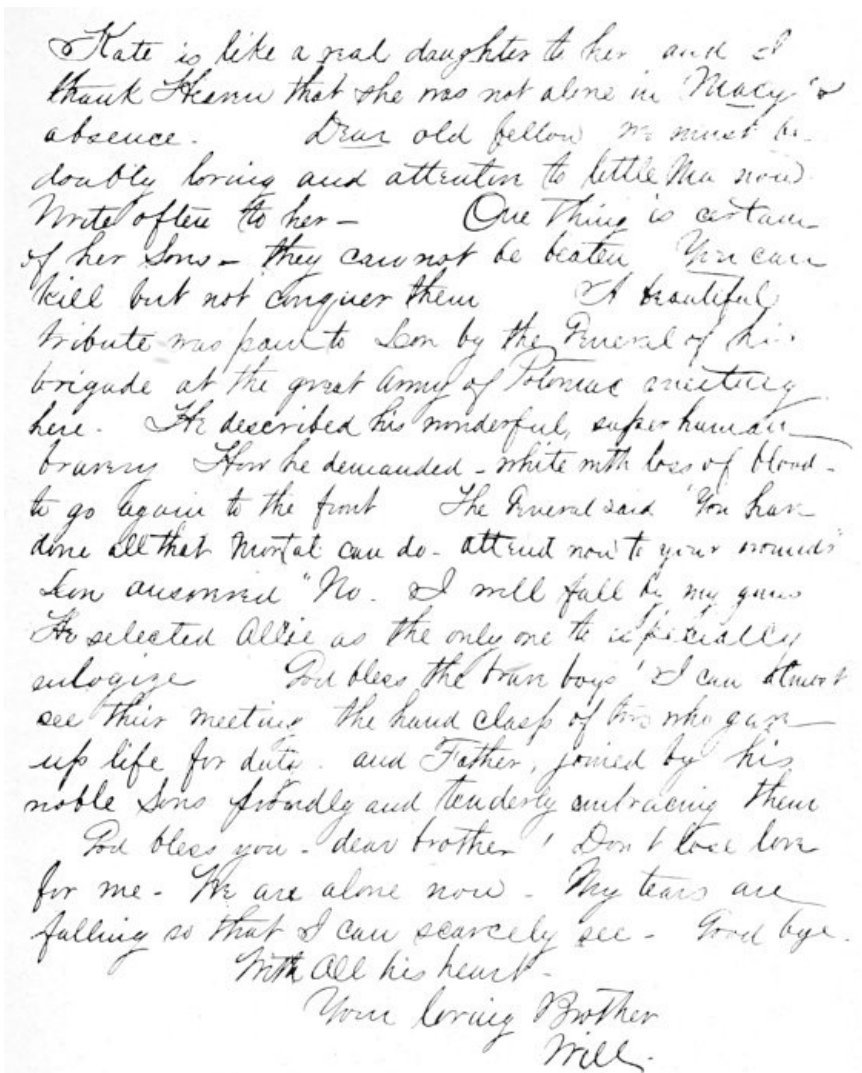 Kate is like a real daughter to her and I
thank Heaven that she was not alone in Macy's
absence. Dear old fellow we must be
doubly loving and attentive to little Ma now.
Write often to her – One thing is certain
of her Sons – they cannot be beaten You can
kill but not conquer them A beautiful
tribute was paid to Lon by the General of his
brigade at the great Army of Potomac meeting
here. He described his wonderful, superhuman
bravery How he demanded – white with loss of blood –
to go again to the front The General said "You have
done all that Mortal can do – attend now to your wounds"
Lon answered "No. I will fall by my guns
He selected Allie as the only one to especially
eulogize God bless the brave boys! I can almost
see their meeting the hand clasp of two who gave
up life for duty. and Father, joined by his
noble Sons proudly and tenderly embracing them
God bless you – dear brother! Don't lose love
for me – We are alone now – My tears are
falling so that I can scarcely see – Good bye.
With All his heart –
Your loving Brother
Will.